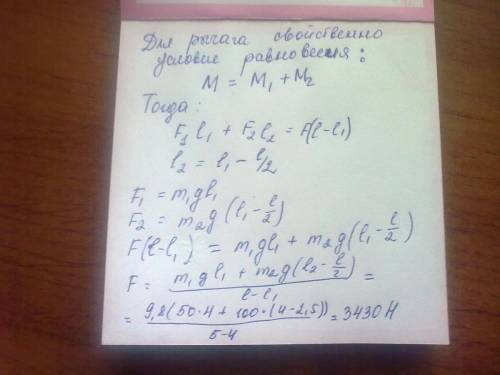 Для рычага свойственно
условие равновесия:
M = M₁ + M₂
Тогда:
F₁ l₁ + F₂ l₂ = F(l-l₁)
l₂ = l₁ - l/2
F₁ = m₁gl₁
F₂ = m₂g (l₁ - l/2)
F(l-l₁) = m₁gl₁ + m₂g(l₁ - l/2)
F = (m₁gl₁ + m₂g(l₂ - l/2))/(l-l₁) =
= 9,8(50·4 + 100·(4-2,5))/(5-4) = 3430 Н